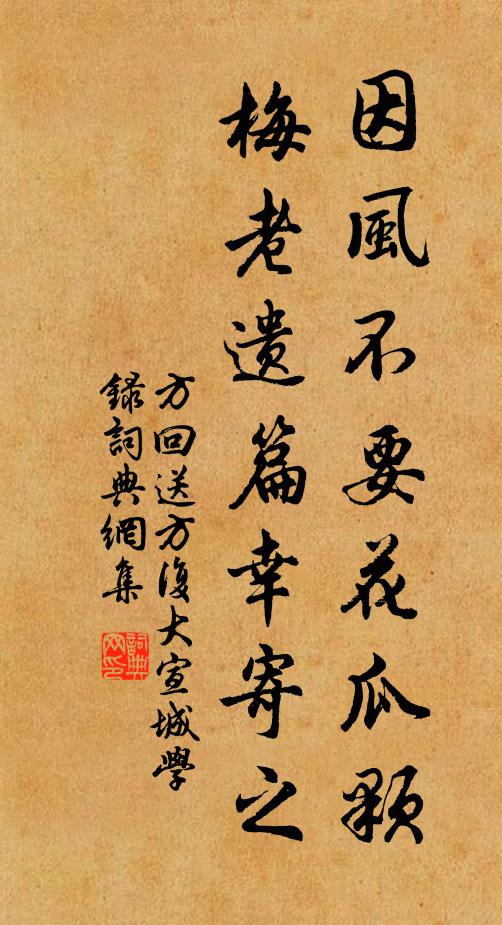 因風不要花瓜顆
梅老遺篇幸寄之
方回送方復大宣城學
錄詞典網集
詞典
网印